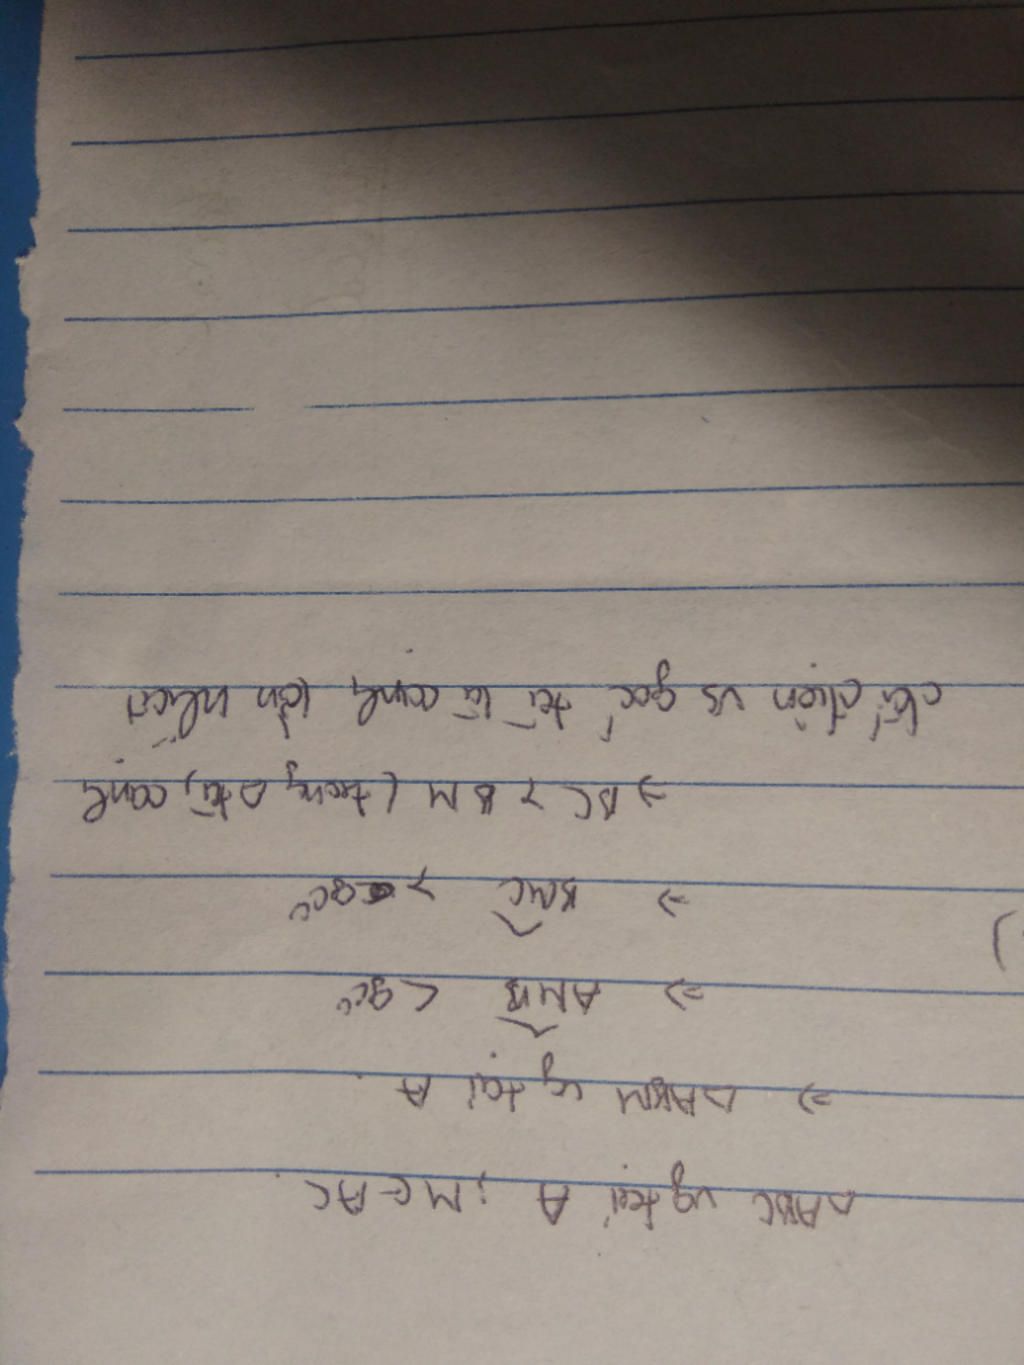 ΔABC vg tại A ; M ∈ AC
=> ΔABM vg tại A
=> AMB < 90°
=> BMC > 90°
=> BC > BM (trong Δ tù, cạnh
đối diện vs góc tù là cạnh lớn nhất)